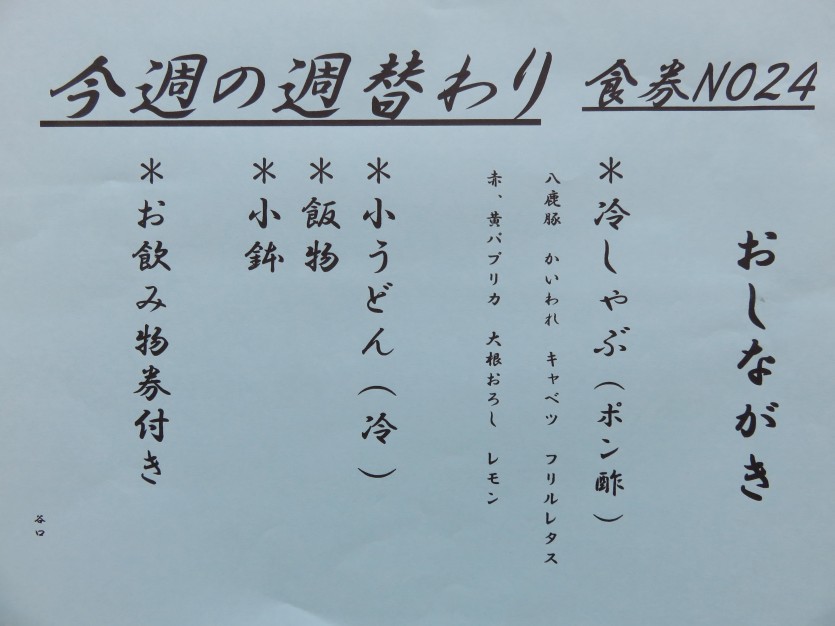 今週の週替わり
食券NO24
おしながき
＊冷しゃぶ（ポン酢）
八鹿豚　かいわれ　キャベツ　フリルレタス
赤、黄パプリカ　大根おろし　レモン
＊小うどん（冷）
＊飯物
＊小鉢
＊お飲み物券付き
谷口